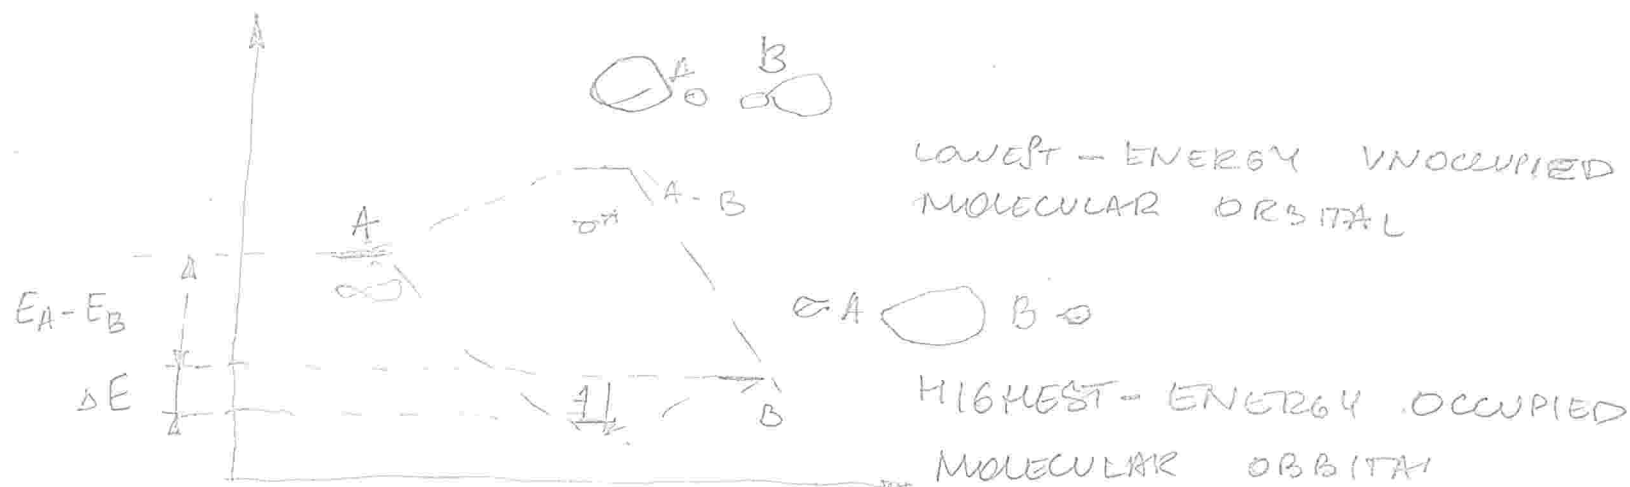 A
B
LOWEST - ENERGY UNOCCUPIED
MOLECULAR ORBITAL
A - B
A
σ*
E_A - E_B
A
B
HIGHEST - ENERGY OCCUPIED
ΔE
B
MOLECULAR OBBITAL